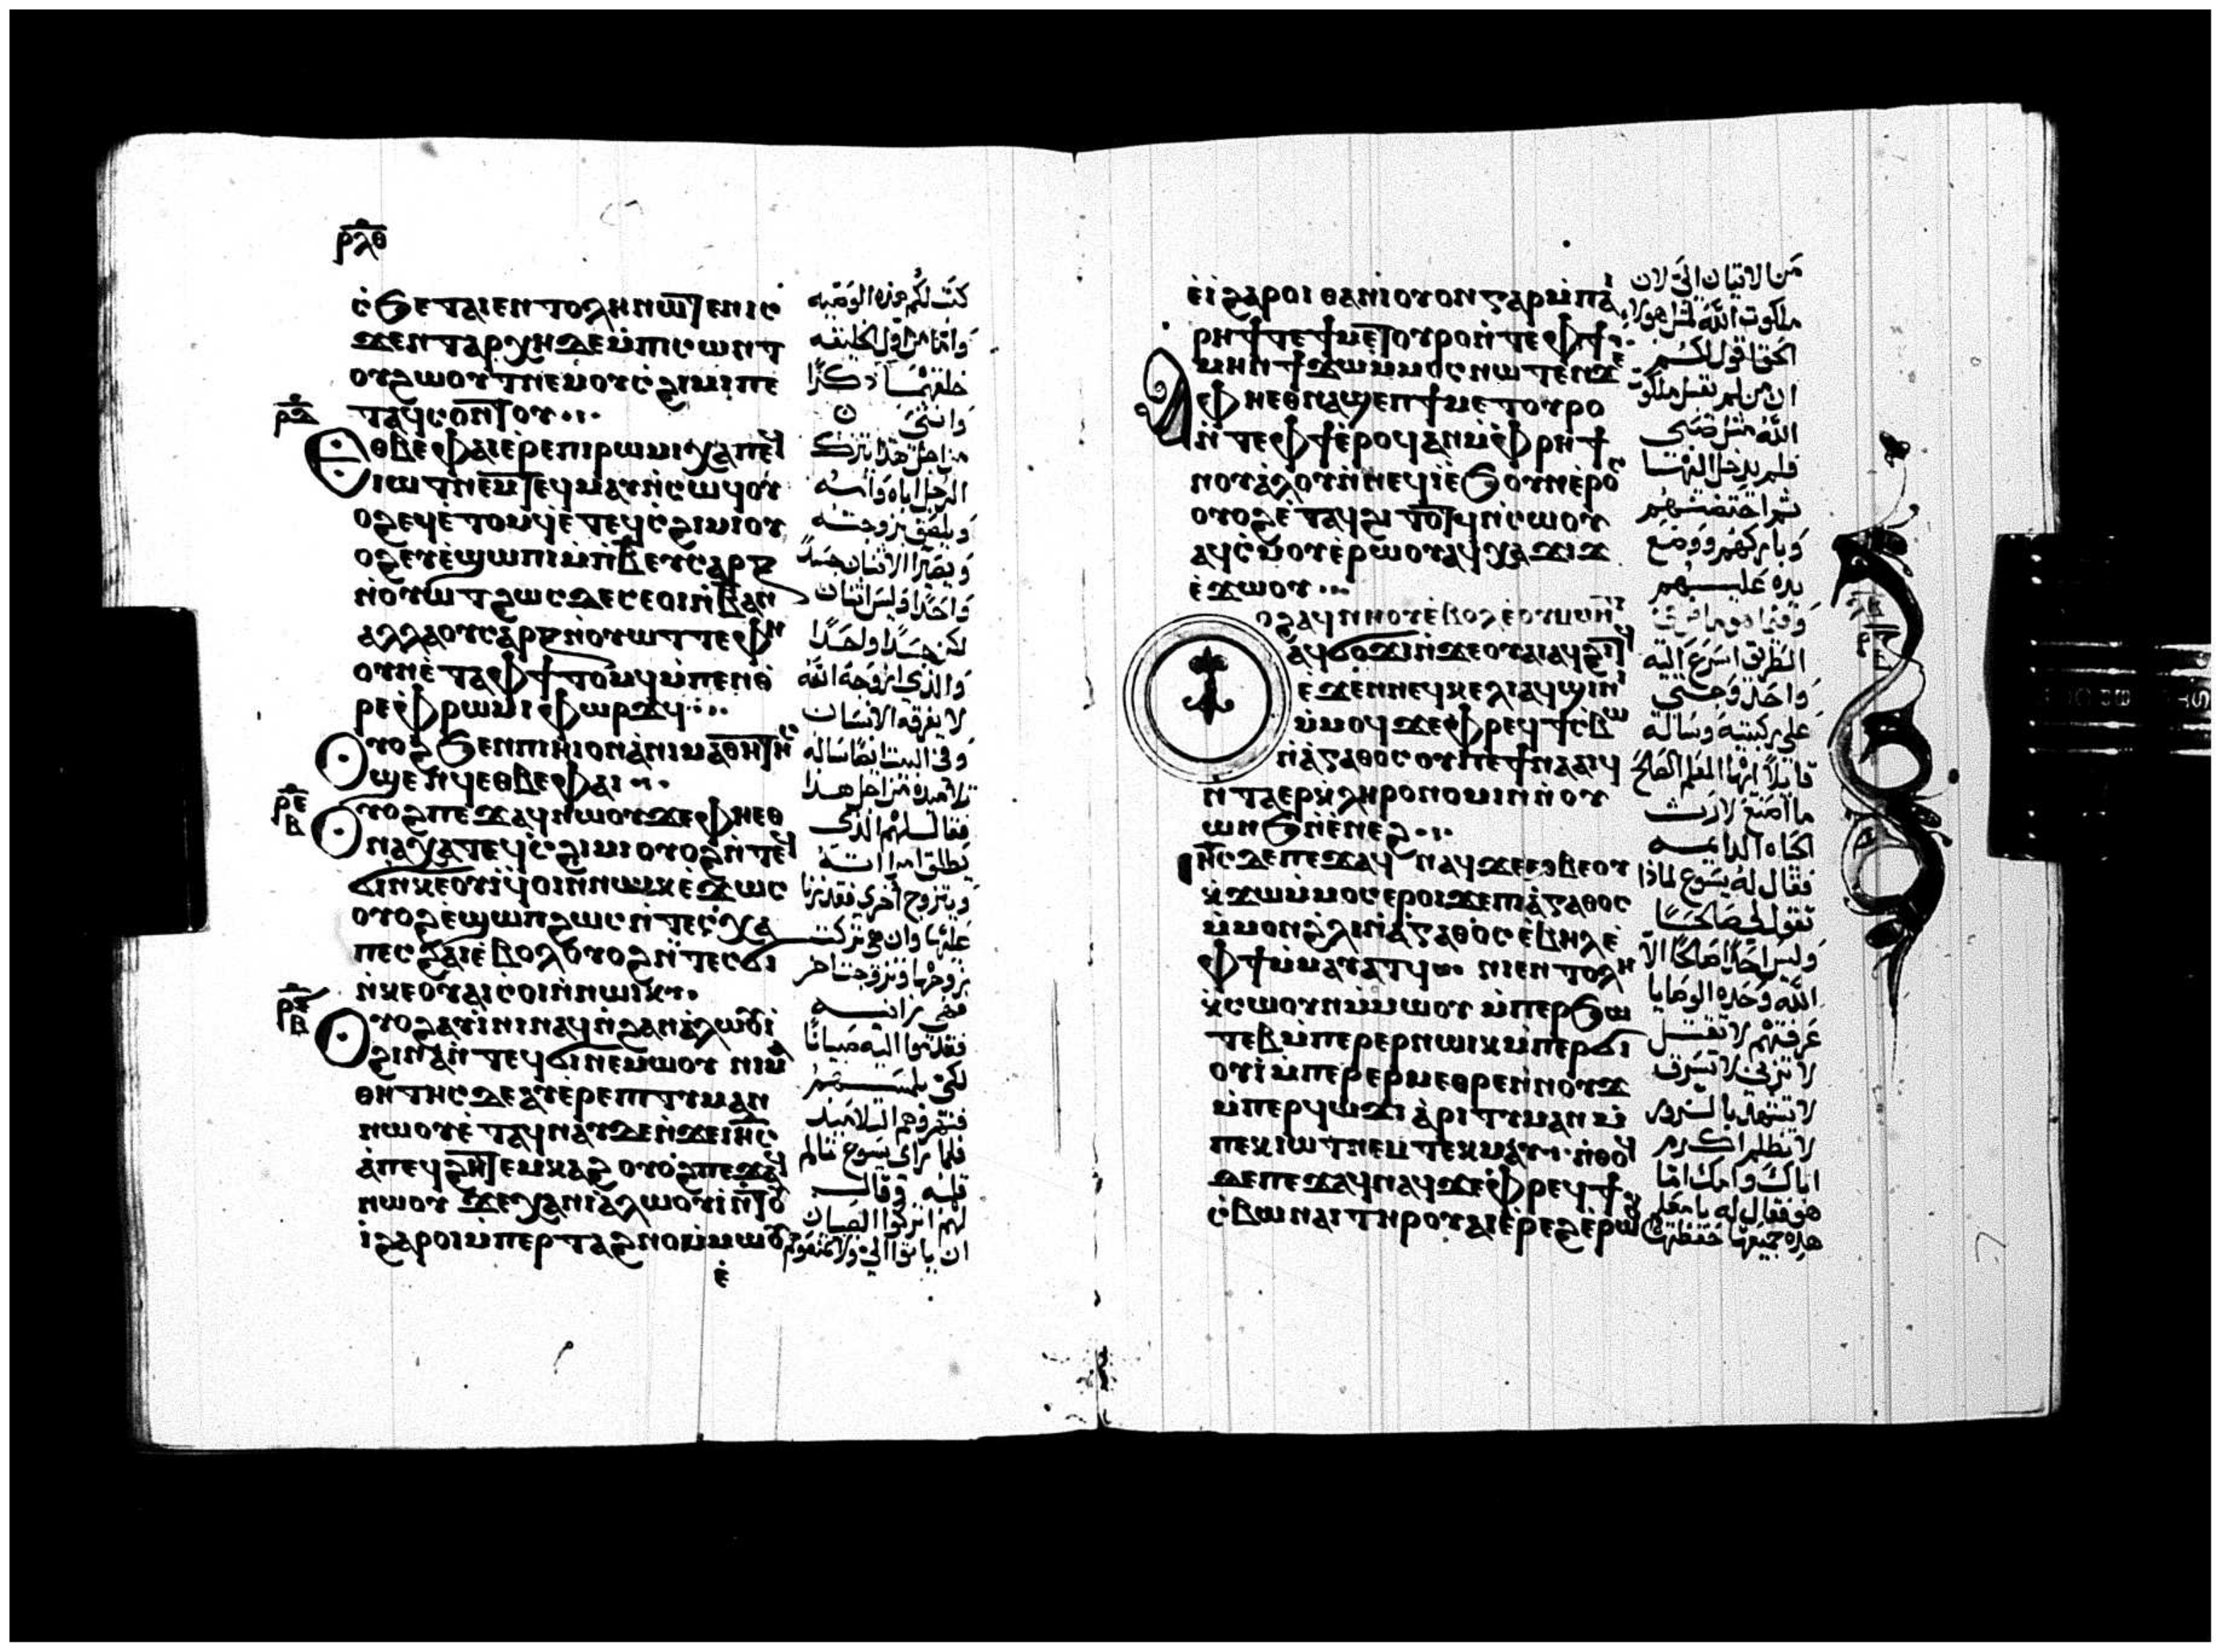 ⲣⲗⲑ
ⲥ̀ϧⲉ ⲧⲁⲓⲉⲛⲧⲟⲗⲏ ⲛⲱⲧⲉⲛ ⲓⲥ
ϫⲉⲛ ⲧⲁⲣⲭⲏ ⲇⲉ ⲙ̀ⲡⲓⲥⲱⲛⲧ
ⲟⲩϩⲱⲟⲩⲧ ⲛⲉⲙ ⲟⲩⲥ̀ϩⲓⲙⲓ ⲡⲉ
ⲣⲇ
ⲧⲁϥⲥⲟⲛⲧⲟⲩ
ⲉⲑⲃⲉ ⲫⲁⲓ ⲉⲣⲉ ⲡⲓⲣⲱⲙⲓ ⲭⲁ ⲡⲉϥ
ⲓⲱⲧ ⲛⲉⲙ ⲧⲉϥⲙⲁⲩ ⲛ̀ⲥⲱϥ ⲟⲩ
ⲟϩ ⲉϥⲉ̀ⲧⲟⲙϥ ⲉ̀ⲧⲉϥⲥ̀ϩⲓⲙⲓ ⲟⲩ
ⲟϩ ⲉⲩⲉ̀ϣⲱⲡⲓ ⲙ̀ⲡⲃ̅ ⲉⲩⲥⲁⲣⲝ
ⲛ̀ⲟⲩⲱⲧ ϩⲱⲥ ⲇⲉ ⲥⲉⲟⲓ ⲛ̀ⲃ̅ ⲁⲛ
ⲁⲗⲗⲁ ⲟⲩⲥⲁⲣⲝ ⲛ̀ⲟⲩⲱⲧ ⲧⲉ ⲫⲏ
ⲟⲩⲛ ⲉ̀ⲧⲁ ⲫϯ ⲧⲟⲙϥ ⲙ̀ⲡⲉⲛⲑ
ⲣⲉ ⲫⲣⲱⲙⲓ ⲫⲱⲣϫϥ
ⲟⲩⲟϩ ϧⲉⲛ ⲡⲓⲏⲓ ⲟⲛ ⲁ̀ ⲛⲓⲙⲁⲑⲏⲧⲏⲥ
ϣⲉⲛϥ ⲉⲑⲃⲉ ⲫⲁⲓ
ⲣⲉ ⲃ
ⲟⲩⲟϩ ⲡⲉϫⲁϥ ⲛⲱⲟⲩ ϫⲉ ⲫⲏ ⲉⲑ
ⲛⲁⲭⲁ ⲧⲉϥⲥ̀ϩⲓⲙⲓ ⲟⲩⲟϩ ⲛ̀ⲧⲉϥ
ϭⲓ ⲛ̀ⲕⲉⲟⲩⲓ̀ ϥⲟⲓ ⲛ̀ⲛⲱⲓⲕ ⲉ̀ϫⲱⲥ
ⲟⲩⲟϩ ⲉ̀ϣⲱⲡ ϩⲱⲥ ⲛ̀ⲧⲉⲥⲭⲁ
ⲡⲉⲥϩⲁⲓ ⲉ̀ⲃⲟⲗ ⲟⲩⲟϩ ⲛ̀ⲧⲉⲥϭⲓ
ⲛ̀ⲕⲉⲟⲩⲁⲓ ⲥⲟⲓ ⲛ̀ⲛⲱⲓⲕ
ⲣⲋ ⲃ
ⲟⲩⲟϩ ⲁⲩⲓ̀ⲛⲓ ⲛⲁϥ ⲛ̀ϩⲁⲛⲁ̀ⲗⲱⲟⲩⲓ̀
ϩⲓⲛⲁ ⲛ̀ⲧⲉϥϭⲓ ⲛⲉⲙⲱⲟⲩ ⲛⲓⲙⲁ
ⲑⲏⲧⲏⲥ ⲇⲉ ⲁⲩⲉ̀ⲣⲉⲡⲓⲧⲓⲙⲁⲛ
ⲛⲱⲟⲩ ⲉ̀ⲧⲁϥⲛⲁⲩ ⲇⲉ ⲛ̀ϫⲉ ⲓⲏⲥ
ⲁ̀ ⲡⲉϥϩⲏⲧ ⲉⲙⲕⲁϩ ⲟⲩⲟϩ ⲡⲉϫⲁϥ
ⲛⲱⲟⲩ ϫⲉ ⲭⲁ ⲛⲓⲁ̀ⲗⲱⲟⲩⲓ̀ ⲛ̀ⲧⲟⲩ
ⲓ̀ ϩⲁⲣⲟⲓ ⲙ̀ⲡⲉⲣⲧⲁϩⲛⲟ ⲙ̀ⲙⲱⲟⲩ
ⲉ̀
كتب لكم هذه الوصيه
وامّا من اول الخليقه
خلقهما ذكرًا
وانثى
من اجل هذا يترك
الرجل اباه وامه
ويلصق بزوجته
ويصيرا الاثنان جسدًا
واحدًا وليس اثنان
لكن جسدًا واحدًا
والذي ازوجه الله
لا يفرقه الانسان
وفى البيت ايضًا ساله
تلاميذه من اجل هذا
فقال لهم الذى
يطلق امراته
ويتزوج اخرى فقد زنا
عليها وان هى تركت
زوجها وتزوجت باخر
فهى زانيه
فقدموا اليه صبيانًا
لكى يلمسهم
فنتهروهم التلاميذ
فلما راى يسوع تالم
قلبه وقال
لهم اتركوا الصبيان
ان ياتوا الىّ ولا تمنعوهم
ⲉ̀ⲓ̀ ϩⲁⲣⲟⲓ ⲑⲁ ⲛⲓⲟⲩⲟⲛ ⲅⲁⲣ ⲙ̀ⲡⲁⲓ
ⲣⲏϯ ⲧⲉ ϯⲙⲉⲧⲟⲩⲣⲟ ⲛ̀ⲧⲉ ⲫϯ
ⲁ̀ⲙⲏⲛ ϯϫⲱ ⲙ̀ⲙⲟⲥ ⲛⲱⲧⲉⲛ ϫⲉ
ⲫⲏ ⲉⲑⲛⲁϣⲉⲡ ϯⲙⲉⲧⲟⲩⲣⲟ
ⲛ̀ⲧⲉ ⲫϯ ⲉ̀ⲣⲟϥ ⲁⲛ ⲙ̀ⲫⲣⲏϯ
ⲛⲟⲩⲁ̀ⲗⲟⲩ ⲛ̀ⲛⲉϥⲓ̀ ⲉ̀ϧⲟⲩⲛ ⲉ̀ⲣⲟⲥ
ⲟⲩⲟϩ ⲉ̀ⲧⲁϥϩⲓⲧⲟⲧϥ ⲛ̀ⲥⲱⲟⲩ
ⲁϥⲥ̀ⲙⲟⲩ ⲉ̀ⲣⲱⲟⲩ ⲁϥⲭⲁ ϫⲓϫ
ⲉ̀ϫⲱⲟⲩ
ⲟⲩⲟϩ ⲁϥⲛⲏⲟⲩ ⲉ̀ⲃⲟⲗ ⲉⲟⲩⲙⲱⲓⲧ
ⲁϥϭⲟϫⲓ ⲛ̀ϫⲉ ⲟⲩⲁⲓ ⲁϥϩⲓⲧϥ
ⲉ̀ϫⲉⲛ ⲛⲉϥⲕⲉⲗⲓ ⲁϥϣⲓⲛⲓ
ⲙ̀ⲙⲟϥ ϫⲉ ⲫⲣⲉϥϯⲥ̀ⲃⲱ
ⲛ̀ⲁ̀ⲅⲁⲑⲟⲥ ⲟⲩ ⲡⲉϯⲛⲁⲁⲓϥ
ⲛ̀ⲧⲁⲉⲣⲕⲗⲏⲣⲟⲛⲟⲙⲓⲛ ⲛ̀ⲟⲩ
ⲱⲛϧ ⲛ̀ⲉ̀ⲛⲉϩ
ⲓⲏⲥ ⲇⲉ ⲡⲉϫⲁϥ ⲛⲁϥ ϫⲉ ⲉⲑⲃⲉ ⲟⲩ
ⲕ̀ϫⲱ ⲙ̀ⲙⲟⲥ ⲉⲣⲟⲓ ϫⲉ ⲡⲓⲁ̀ⲅⲁⲑⲟⲥ
ⲙ̀ⲙⲟⲛ ϩ̀ⲗⲓ ⲛ̀ⲁ̀ⲅⲁⲑⲟⲥ ⲉ̀ⲃⲏⲗ ⲉ̀
ⲫϯ ⲙ̀ⲙⲁⲩⲁⲧϥ ⲛⲓⲉⲛⲧⲟⲗⲏ
ⲕ̀ⲥⲱⲟⲩⲛ ⲙ̀ⲙⲱⲟⲩ ⲙ̀ⲡⲉⲣϧⲱ
ⲧⲉⲃ ⲙ̀ⲡⲉⲣⲉⲣⲛⲱⲓⲕ ⲙ̀ⲡⲉⲣϭⲓ
ⲟⲩⲓ̀ ⲙ̀ⲡⲉⲣⲉⲣⲙⲉⲑⲣⲉ ⲛ̀ⲛⲟⲩϫ
ⲙ̀ⲡⲉⲣϥⲱϫⲓ ⲁ̀ⲣⲓⲧⲓⲙⲁⲛ ⲙ̀
ⲡⲉⲕⲓⲱⲧ ⲛⲉⲙ ⲧⲉⲕⲙⲁⲩ ⲛ̀ⲑⲟϥ
ⲇⲉ ⲡⲉϫⲁϥ ⲛⲁϥ ϫⲉ ⲫⲣⲉϥϯ
ⲥ̀ⲃⲱ ⲛⲁⲓ ⲧⲏⲣⲟⲩ ⲁⲓⲉ̀ⲣⲉϩ ⲉ̀ⲣⲱⲟⲩ
من الاتيان الىّ لان
ملكوت الله لمثل هولاء
الحق اقول لكم
ان من لم يقبل ملكوت
الله مثل صبى
فلم يدخل اليها
ثم احتضنهم
وباركهم ووضع
يده عليهم
الطريق اسرع اليه
واحد وجثى
على ركبتيه وساله
قايلًا ايها المعلم الصالح
ما اصنع لارث
الحياه الدايمه
فقال له يسوع لماذا
تقول لى صالحًا
وليس احدًا صالحًا الا
الله وحده الوصايا
عرفتهم لا تقتل
لا تزنى لا تسرق
لا تشهد بالزور
لا تظلم اكرم
اباك وامك امّا
هو فقال له يا معلم
هذه جميعها حفظتها